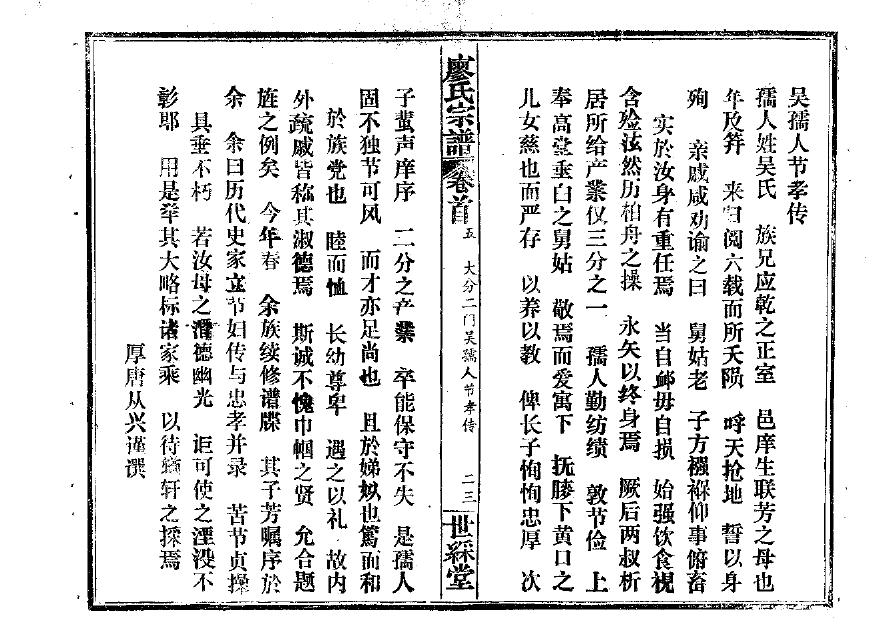 吴孺人节孝传
孺人姓吴氏 族兄应乾之正室 邑庠生联芳之母也
年及笄 来归阅六载而所天陨 呼天抢地 誓以身
殉 亲戚咸劝谕之曰 舅姑老 子方襁褓仰事俯畜
实於汝身有重任焉 当自邮毋自损 始强饮食视
含殓泫然历柏舟之操 永矢以终身焉 厥后两叔析
居所给产业仅三分之一 孺人勤纺绩 敦节俭 上
奉高堂垂白之舅姑 敬焉而爱寓下 抚膝下黄口之
儿女慈也而严存 以养以教 俾长子恂恂忠厚 次
廖氏宗谱 卷首 五 大分二门吴孺人节孝传 二三 世綵堂
子蜚声庠序 二分之产业 卒能保守不失 是孺人
固不独节可风 而才亦足尚也 且於娣姒也笃而和
於族党也 睦而恤 长幼尊卑 遇之以礼 故内
外疏戚皆称其淑德焉 斯诚不愧巾帼之贤 允合题
旌之例矣 今年春 余族续修谱牒 其子芳嘱序於
余 余曰历代史家立节妇传与忠孝并录 苦节贞操
具垂不朽 若汝母之潜德幽光 讵可使之湮没不
彰耶 用是举其大略标诸家乘 以待輶轩之採焉
厚唐从兴谨撰